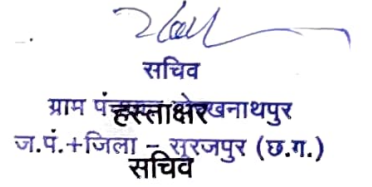 सचिव
ग्राम पंचायत
हस्ताक्षर
ज.पं.+जिला – सूरजपुर (छ.ग.)
सचिव